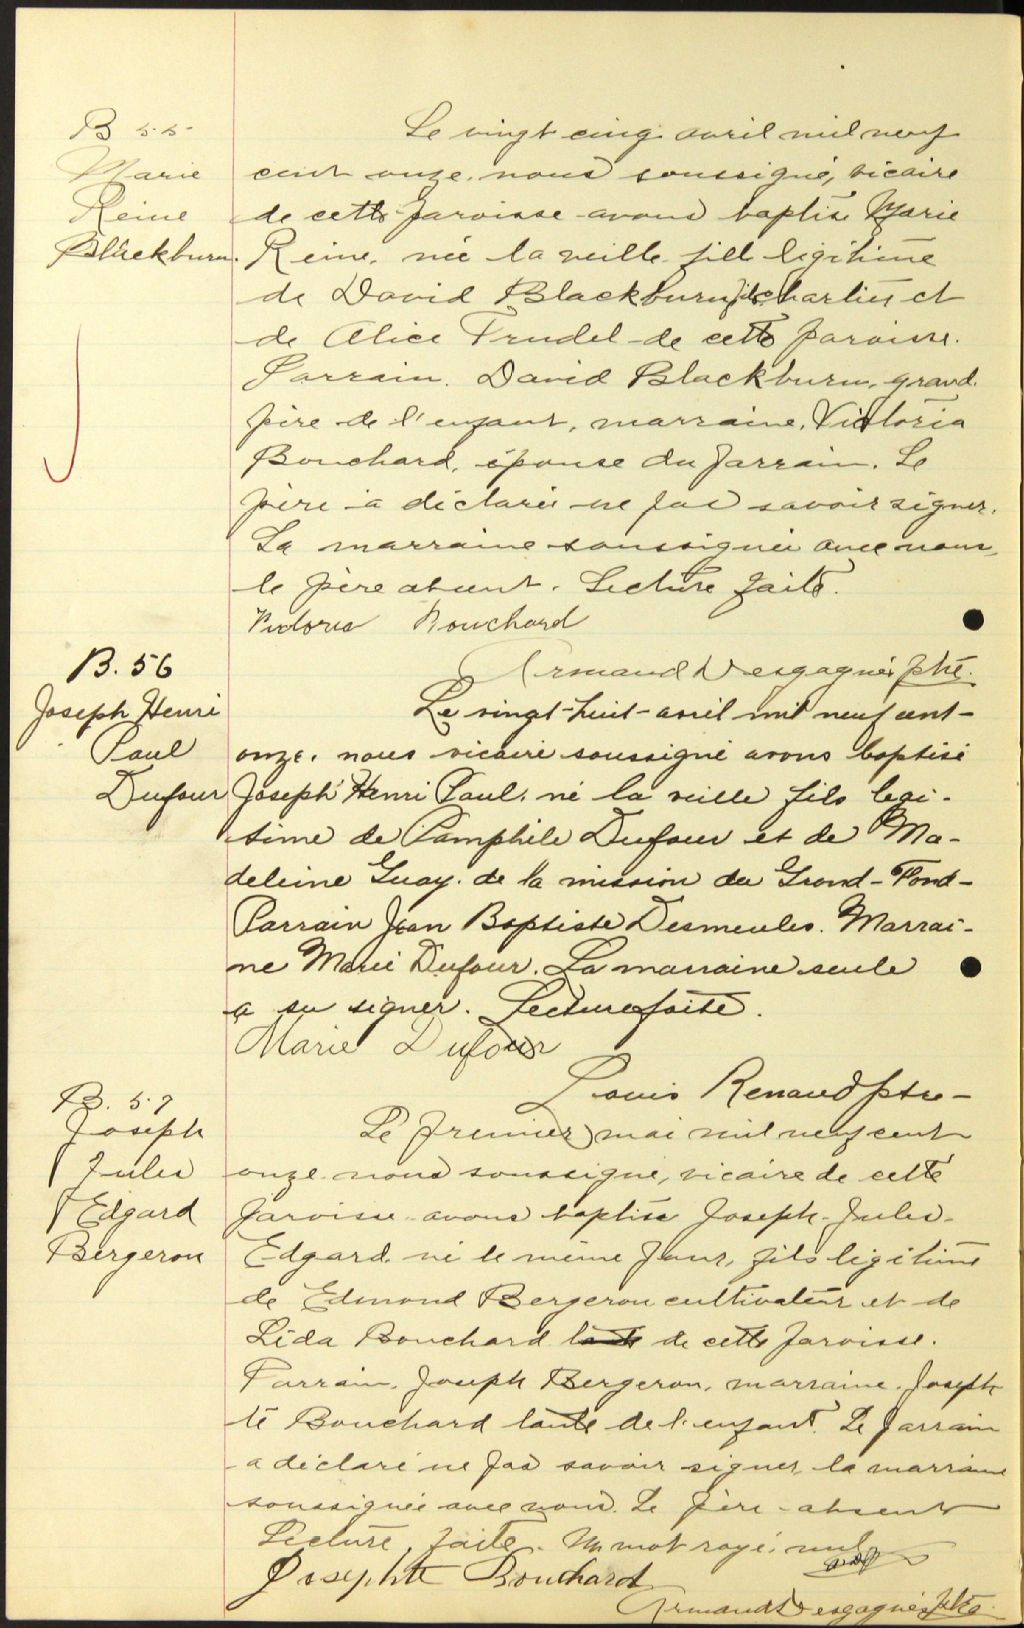 B 55
Marie
Reine
Blackburn.
Le vingt cinq avril mil neuf
cent onze, nous soussigné, vicaire
de cette paroisse avons baptisé Marie
Reine, née la veille fille légitime
de David Blackburn fils charlier et
de Alice Trudel de cette paroisse.
Parrain. David Blackburn, grand
père de l'enfant, marraine, Victoria
Bouchard, épouse du parrain. Le
père a déclaré ne pas savoir signer.
La marraine soussignée avec nous,
le père absent. Lecture faite.
Victoria Bouchard
Armand Desgagnés ptre.
B. 56
Joseph Henri
Paul
Dufour
Le vingt-huit-avril mil neuf cent-
onze, nous vicaire soussigné avons baptisé
Joseph Henri Paul, né la veille fils legi-
time de Pamphile Dufour et de Ma-
deleine Guay, de la mission du Grand-Fond-
Parrain Jean Baptiste Desmeules. Marrai-
ne Marie Dufour. La marraine seule
a su signer. Lecture faite.
Marie Dufour
Louis Renaud ptre-
B. 57
Joseph
Jules
Edgard
Bergeron
Le premier mai mil neuf cent
onze nous soussigné, vicaire de cette
paroisse avons baptisé Joseph-Jules-
Edgard, né le même jour, fils légitime
de Edmond Bergeron cultivateur et de
Léda Bouchard de cette paroisse.
Parrain, Joseph Bergeron, marraine, Joseph
te Bouchard tante de l'enfant. Le parrain
a déclaré ne pas savoir signer, la marraine
soussignée avec nous. Le père absent
Lecture faite. Un mot rayé, nul
Josephte Bouchard
Armand Desgagnés ptre.